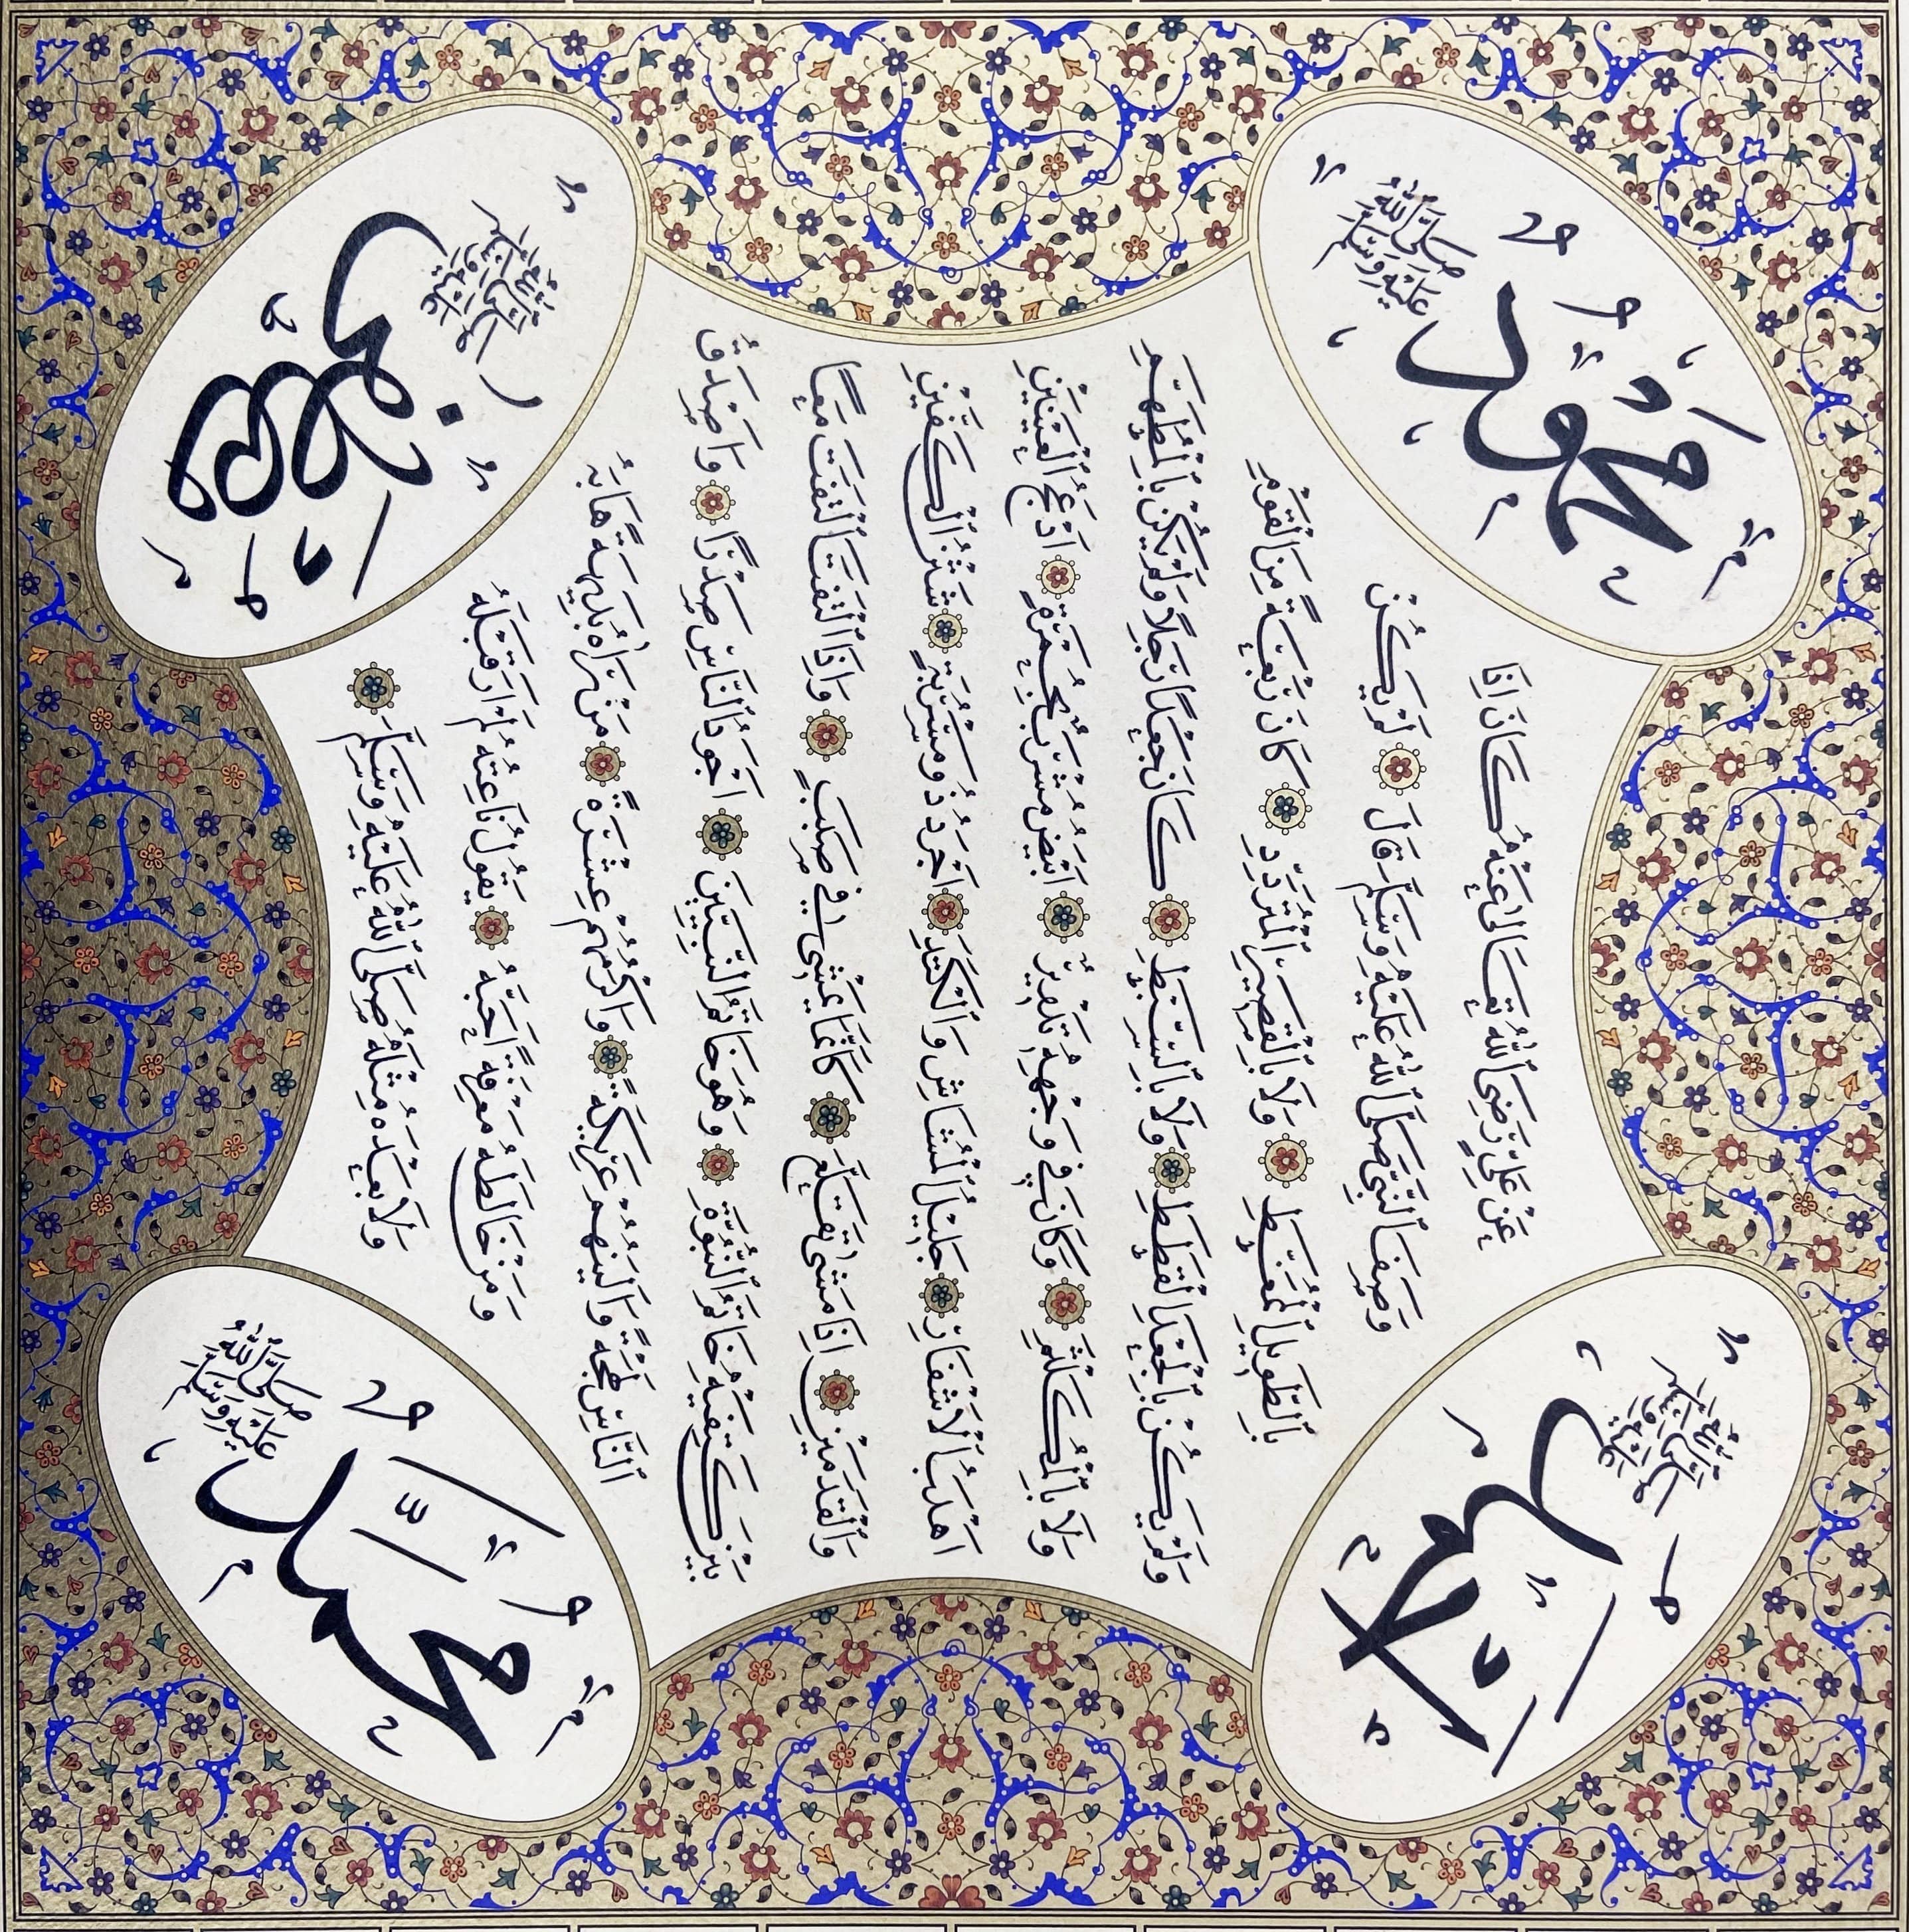 أَحْمَد
صَلَّى اللهُ عَلَيْهِ وَسَلَّمَ
مَحْمُود
صَلَّى اللهُ عَلَيْهِ وَسَلَّمَ
عَنْ عَلِيٍّ رَضِيَ اللهُ تَعَالَى عَنْهُ كَانَ إِذَا
وَصَفَ النَّبِيَّ صَلَّى اللهُ عَلَيْهِ وَسَلَّمَ قَالَ لَمْ يَكُنْ
بِالطَّوِيلِ الْمُمَغَّطِ وَلَا بِالْقَصِيرِ الْمُتَرَدِّدِ كَانَ رَبْعَةً مِنَ الْقَوْمِ
وَلَمْ يَكُنْ بِالْجَعْدِ الْقَطَطِ وَلَا بِالسَّبْطِ كَانَ جَعْدًا رَجِلًا وَلَمْ يَكُنْ بِالْمُطَهَّمِ
وَلَا بِالْمُكَلْثَمِ وَكَانَ فِي وَجْهِهِ تَدْوِيرٌ أَبْيَضُ مُشْرَبٌ بِحُمْرَةٍ أَدْعَجُ الْعَيْنَيْنِ
أَهْدَبُ الْأَشْفَارِ جَلِيلُ الْمُشَاشِ وَالْكَتَدِ أَجْرَدُ ذُو مَسْرُبَةٍ شَثْنُ الْكَفَّيْنِ
وَالْقَدَمَيْنِ إِذَا مَشَى يَتَقَلَّعُ كَأَنَّمَا يَمْشِي فِي صَبَبٍ وَإِذَا الْتَفَتَ الْتَفَتَ مَعًا
بَيْنَ كَتِفَيْهِ خَاتَمُ النُّبُوَّةِ وَهُوَ خَاتَمُ النَّبِيِّينَ أَجْوَدُ النَّاسِ صَدْرًا وَأَصْدَقُ
النَّاسِ لَهْجَةً وَأَلْيَنُهُمْ عَرِيكَةً وَأَكْرَمُهُمْ عِشْرَةً مَنْ رَآهُ بَدِيهَةً هَابَهُ
وَمَنْ خَالَطَهُ مَعْرِفَةً أَحَبَّهُ يَقُولُ نَاعِتُهُ لَمْ أَرَ قَبْلَهُ
وَلَا بَعْدَهُ مِثْلَهُ صَلَّى اللهُ عَلَيْهِ وَسَلَّمَ
مُحَمَّد
صَلَّى اللهُ عَلَيْهِ وَسَلَّمَ
مُصْطَفَى
صَلَّى اللهُ عَلَيْهِ وَسَلَّمَ